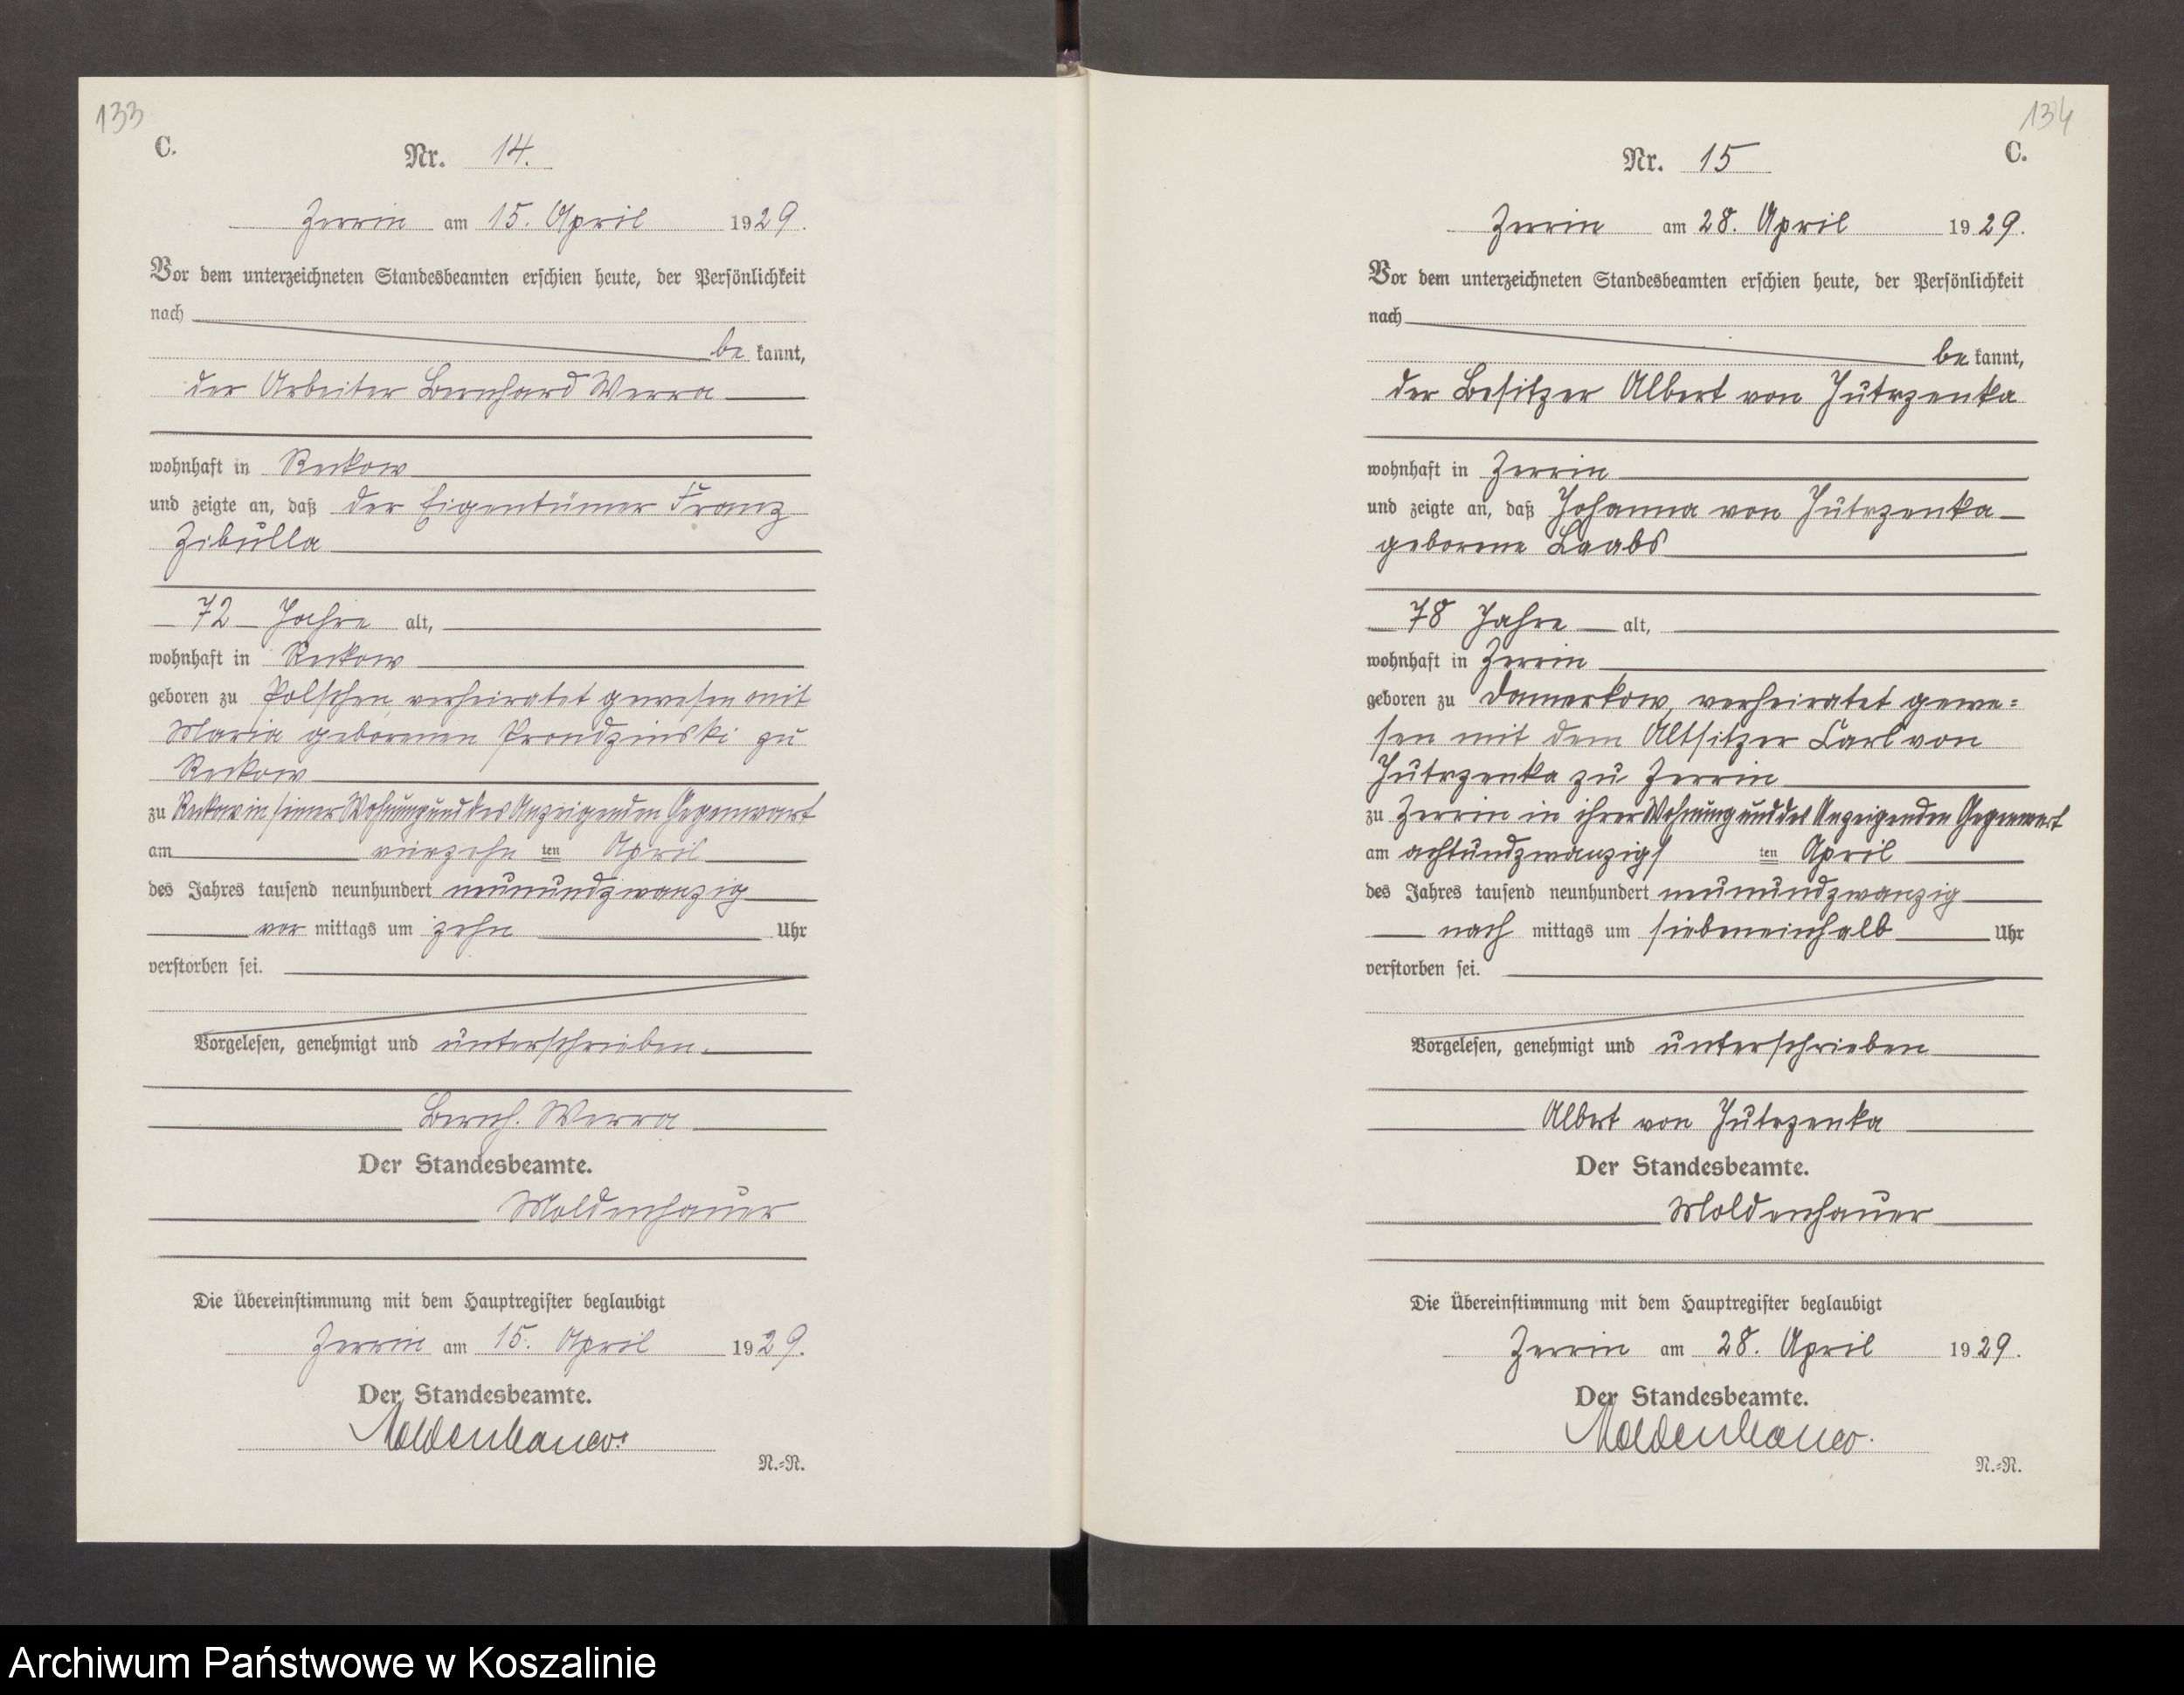 133
C.
Nr. 14.
Zerrin am 15. April 1929.
Vor dem unterzeichneten Standesbeamten erschien heute, der Persönlichkeit
nach
be kannt,
der Arbeiter Bernhard Werra
wohnhaft in Reckow
und zeigte an, daß der Eigentümer Franz
Zibulla
72 Jahre alt,
wohnhaft in Reckow
geboren zu Polschen, verheiratet gewesen mit
Maria geborenen Prondzinski zu
Reckow
zu Reckow in seiner Wohnung und des Anzeigenden Gegenwart
am vierzehn ten April
des Jahres tausend neunhundert neunundzwanzig
vor mittags um zehn Uhr
verstorben sei.
Vorgelesen, genehmigt und unterschrieben.
Bernh. Werra
Der Standesbeamte.
Moldenhauer
Die Übereinstimmung mit dem Hauptregister beglaubigt
Zerrin am 15. April 1929.
Der Standesbeamte.
Moldenhauer
N.=N.
134
C.
Nr. 15
Zerrin am 28. April 1929.
Vor dem unterzeichneten Standesbeamten erschien heute, der Persönlichkeit
nach
be kannt,
der Besitzer Albert von Jutrzenka
wohnhaft in Zerrin
und zeigte an, daß Johanna von Jutrzenka
geborene Laabs
78 Jahre alt,
wohnhaft in Zerrin
geboren zu Damerkow, verheiratet gewe=
sen mit dem Altsitzer Carl von
Jutrzenka zu Zerrin
zu Zerrin in ihrer Wohnung und des Anzeigenden Gegenwart
am achtundzwanzigs ten April
des Jahres tausend neunhundert neunundzwanzig
nach mittags um siebeneinhalb Uhr
verstorben sei.
Vorgelesen, genehmigt und unterschrieben
Albert von Jutrzenka
Der Standesbeamte.
Moldenhauer
Die Übereinstimmung mit dem Hauptregister beglaubigt
Zerrin am 28. April 1929.
Der Standesbeamte.
Moldenhauer.
N.=N.
Archiwum Państwowe w Koszalinie